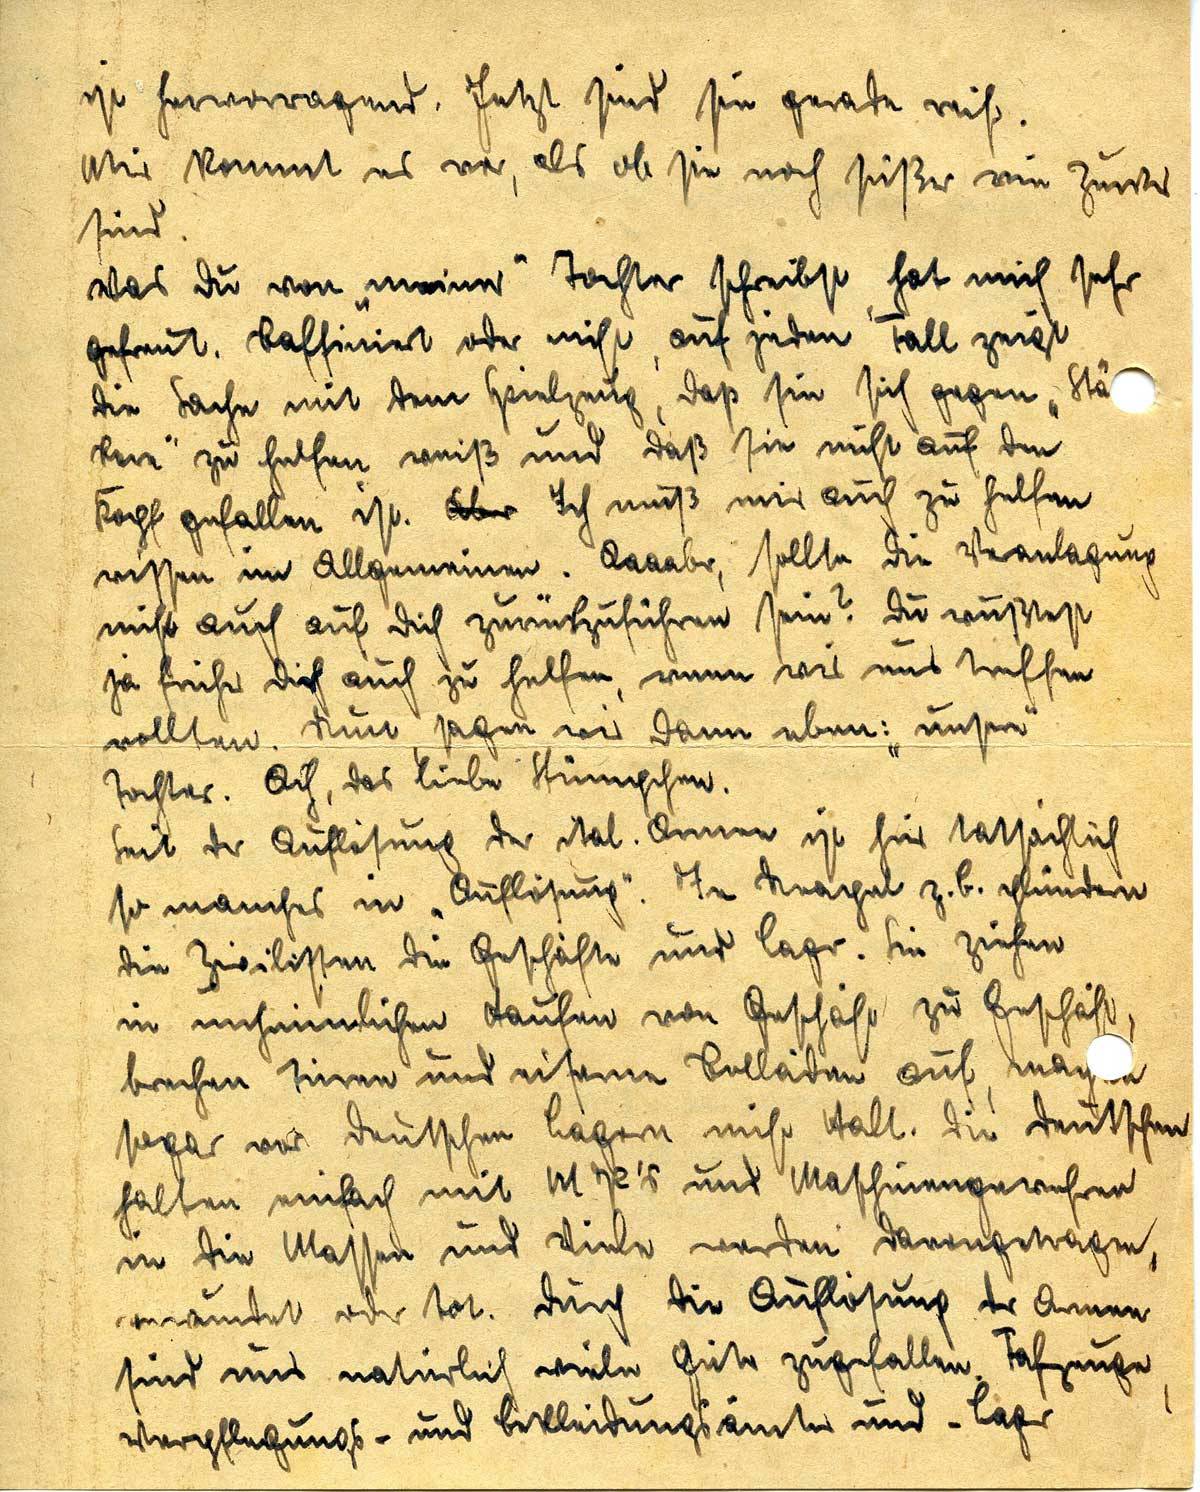 ist hervorragend. Jetzt sind sie gerade reif.
Mir kommt es vor, als ob sie noch süßer wie Zucker
sind.
Was Du von „meiner" Tochter schreibst, hat mich sehr
gefreut. Raffiniert oder nicht, auf jeden Fall zeigt
die Sache mit dem Spielzeug, daß sie sich gegen „Stä
kere" zu helfen weiß und daß sie nicht auf den
Kopf gefallen ist. Aber Ich muß mir auch zu helfen
wissen im Allgemeinen. Aaaabr, sollte die Veranlagung
nicht auch auf Dich zurückzuführen sein? Du wußtest
ja früher Dich auch zu helfen, wenn wir uns treffen
wollten. Nun, sagen wir dann eben: „unsere"
Tochter. Ach, das liebe Stümpchen.
Seit der Auflösung der ital. Armee ist hier tatsächlich
so manches in „Auflösung". In Neapel z.b. plündern
die Zivilisten die Geschäfte und Lager. Sie ziehen
in unheimlichen Haufen von Geschäft zu Geschäft,
brechen Türen und eiserne Rolläden auf, machen
sogar vor deutschen Lagern nicht Halt. Die Deutschen
halten einfach mit und Maschinengewehren
in die Massen und Viele werden davongetragen,
verwundet oder tot. Durch die Auflösung der Armee
sind uns natürlich viele Güter zugefallen. Fahrzeuge,
Verpflegungs- und Bekleidungsämter und -Lager